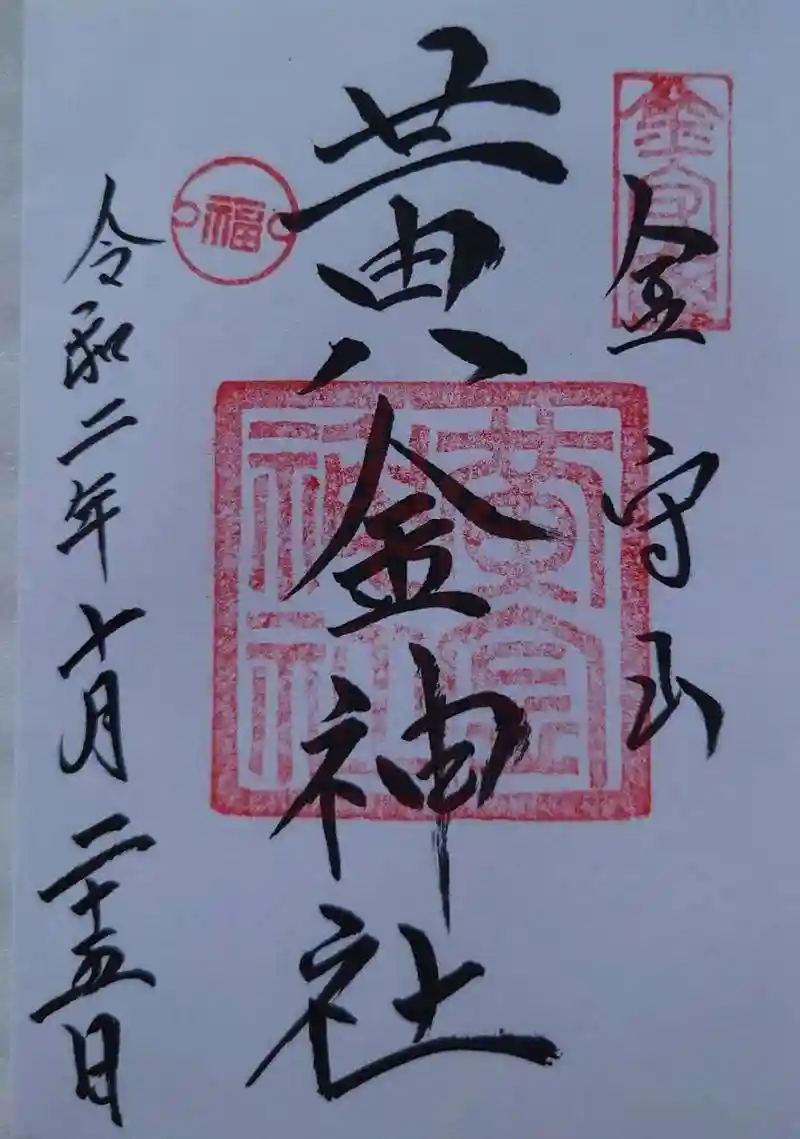 金守山
金守山
黄金神社
黄金神社
福
令和二年十月二十五日